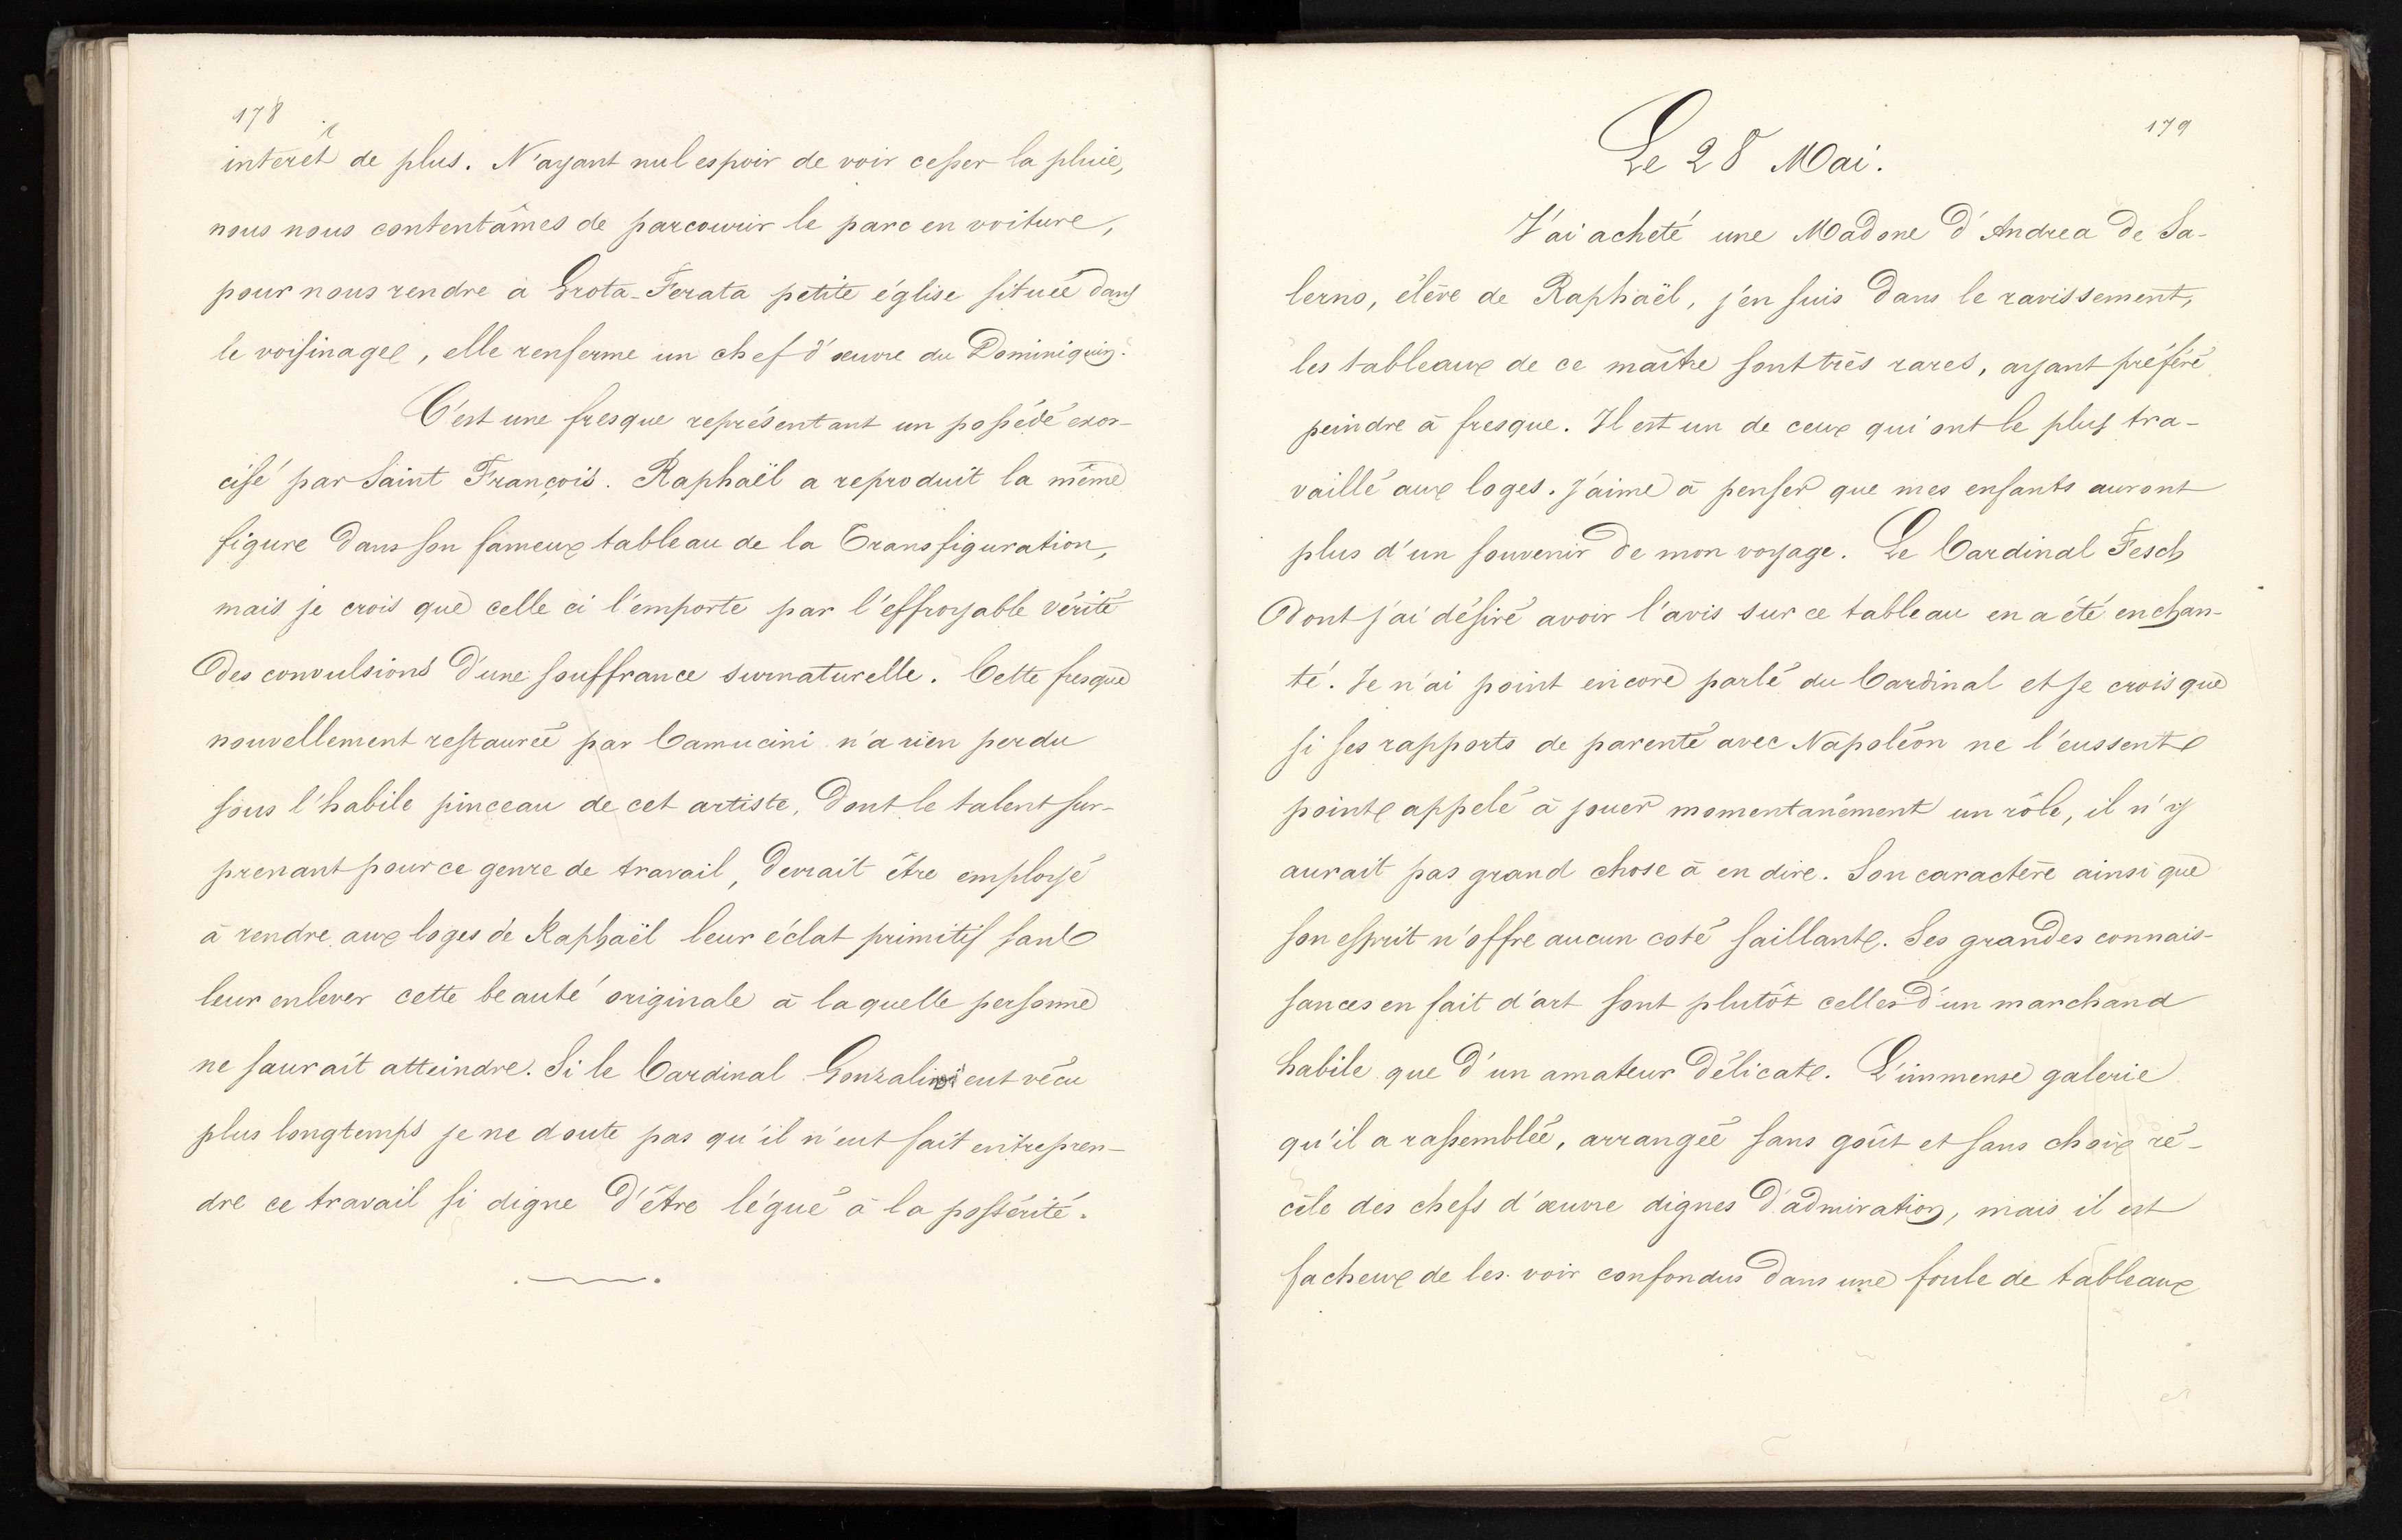 178
intérêt de plus. N'ayant nul espoir de voir cesser la pluie,
nous nous contentâmes de parcourir le parc en voiture,
pour nous rendre à Grota-Ferata petite église située dans
le voisinage, elle renferme un chef d'œuvre du Dominiquin.
C'est une fresque représentant un possédé exor-
cisé par Saint François. Raphaël a reproduit la même
figure dans son fameux tableau de la Transfiguration,
mais je crois que celle ci l'emporte par l'effroyable vérité
des convulsions d'une souffrance surnaturelle. Cette fresque
nouvellement restaurée par Camucini n'a rien perdu
sous l'habile pinceau de cet artiste, dont le talent sur-
prenant pour ce genre de travail, devrait être employé
à rendre aux loges de Raphaël leur éclat primitif sans
leur enlever cette beauté originale à laquelle personne
ne saurait atteindre. Si le Cardinal eut vécu
plus longtemps je ne doute pas qu'il n'eut fait entrepren-
dre ce travail si digne d'être légué à la postérité.
179
Le 28 Mai.
J'ai acheté une Madone d'Andrea de Sa-
lerno, élève de Raphaël, j'en suis dans le ravissement,
les tableaux de ce maître sont très rares, ayant préféré
peindre à fresque. Il est un de ceux qui ont le plus tra-
vaillé aux loges. J'aime à penser que mes enfants auront
plus d'un souvenir de mon voyage. Le Cardinal Fesch
dont j'ai désiré avoir l'avis sur ce tableau en a été enchan-
té. Je n'ai point encore parlé du Cardinal et je crois que
si ses rapports de parenté avec Napoléon ne l'eussent
point appelé à jouer momentanément un rôle, il n'y
aurait pas grand chose à en dire. Son caractère ainsi que
son esprit n'offre aucun coté saillant. Ses grandes connais-
sances en fait d'art sont plutôt celles d'un marchand
habile que d'un amateur délicat. L'immense galerie
qu'il a rassemblée, arrangée sans goût et sans choix re-
cèle des chefs d'œuvre dignes d'admiration, mais il est
facheux de les voir confondus dans une foule de tableaux